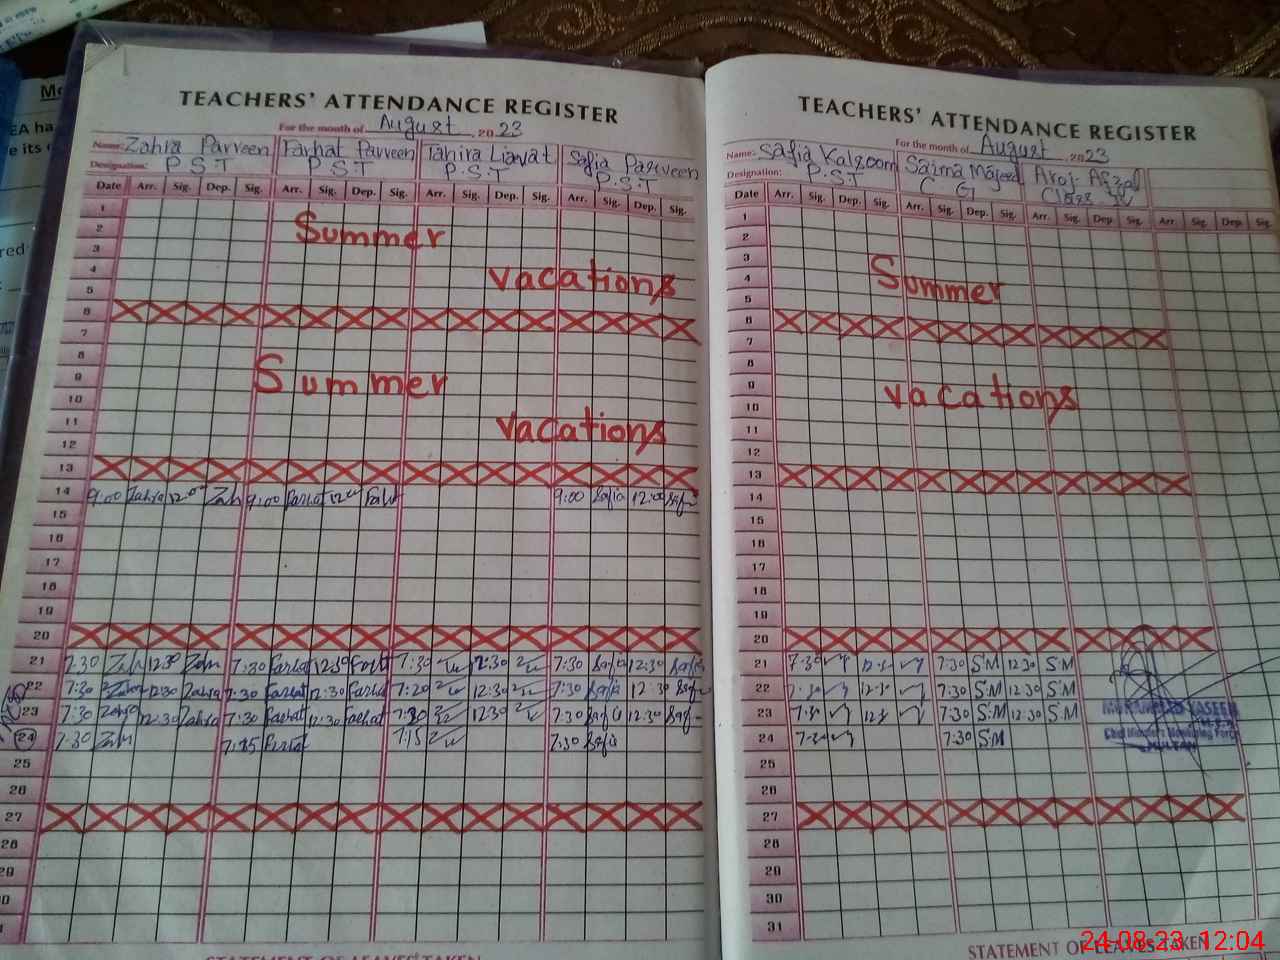 TEACHERS' ATTENDANCE REGISTER
For the month of August 2023
Name: Zahra Parveen Farhat Parveen Tahira Liaqat Safia Parveen
Designation: P.S.T P.S.T P.S.T P.S.T
Date Arr. Sig. Dep. Sig. Arr. Sig. Dep. Sig. Arr. Sig. Dep. Sig. Arr. Sig. Dep. Sig.
1
2 Summer
3
4 vacations
5
6
7
8
9 Summer
10
11 vacations
12
13
14 9:00 Zahra 12:00 Zah 9:00 Farhat 12:00 Farhat 9:00 Safia 12:00 Safia
15
16
17
18
19
20
21 7:30 Zah 12:30 Zahra 7:30 Farhat 12:30 Farhat 7:30 12:30 7:30 Safia 12:30 Safia
22 7:30 Zahra 12:30 Zahra 7:30 Farhat 12:30 Farhat 7:20 12:30 7:30 Safia 12:30 Safia
23 7:30 Zahra 12:30 Zahra 7:30 Farhat 12:30 Farhat 7:30 12:30 7:30 Safia 12:30 Safia
24 7:30 Zah 7:15 Farhat 7:15 7:30 Safia
25
26
27
28
29
30
TEACHERS' ATTENDANCE REGISTER
For the month of August 2023
Name: Safia Kalsoom Saima Majeed Aroj Afzal
Designation: P.S.T C G Class IV
Date Arr. Sig. Dep. Sig. Arr. Sig. Dep. Sig. Arr. Sig. Dep. Sig. Arr. Sig. Dep. Sig.
1
2
3
4 Summer
5
6
7
8
9
10 vacations
11
12
13
14
15
16
17
18
19
20
21 7:30 12:30 7:30 S.M 12:30 S.M
22 7:30 12:30 7:30 S.M 12:30 S.M
23 7:30 12:30 7:30 S.M 12:30 S.M
24 7:30 7:30 S.M
25
26
27
28
29
30
31
MUHAMMAD YASEEN
Chief Minister's Monitoring Force
MULTAN
STATEMENT OF LEAVES TAKEN
STATEMENT OF LEAVES TAKEN
24.08.23 12:04